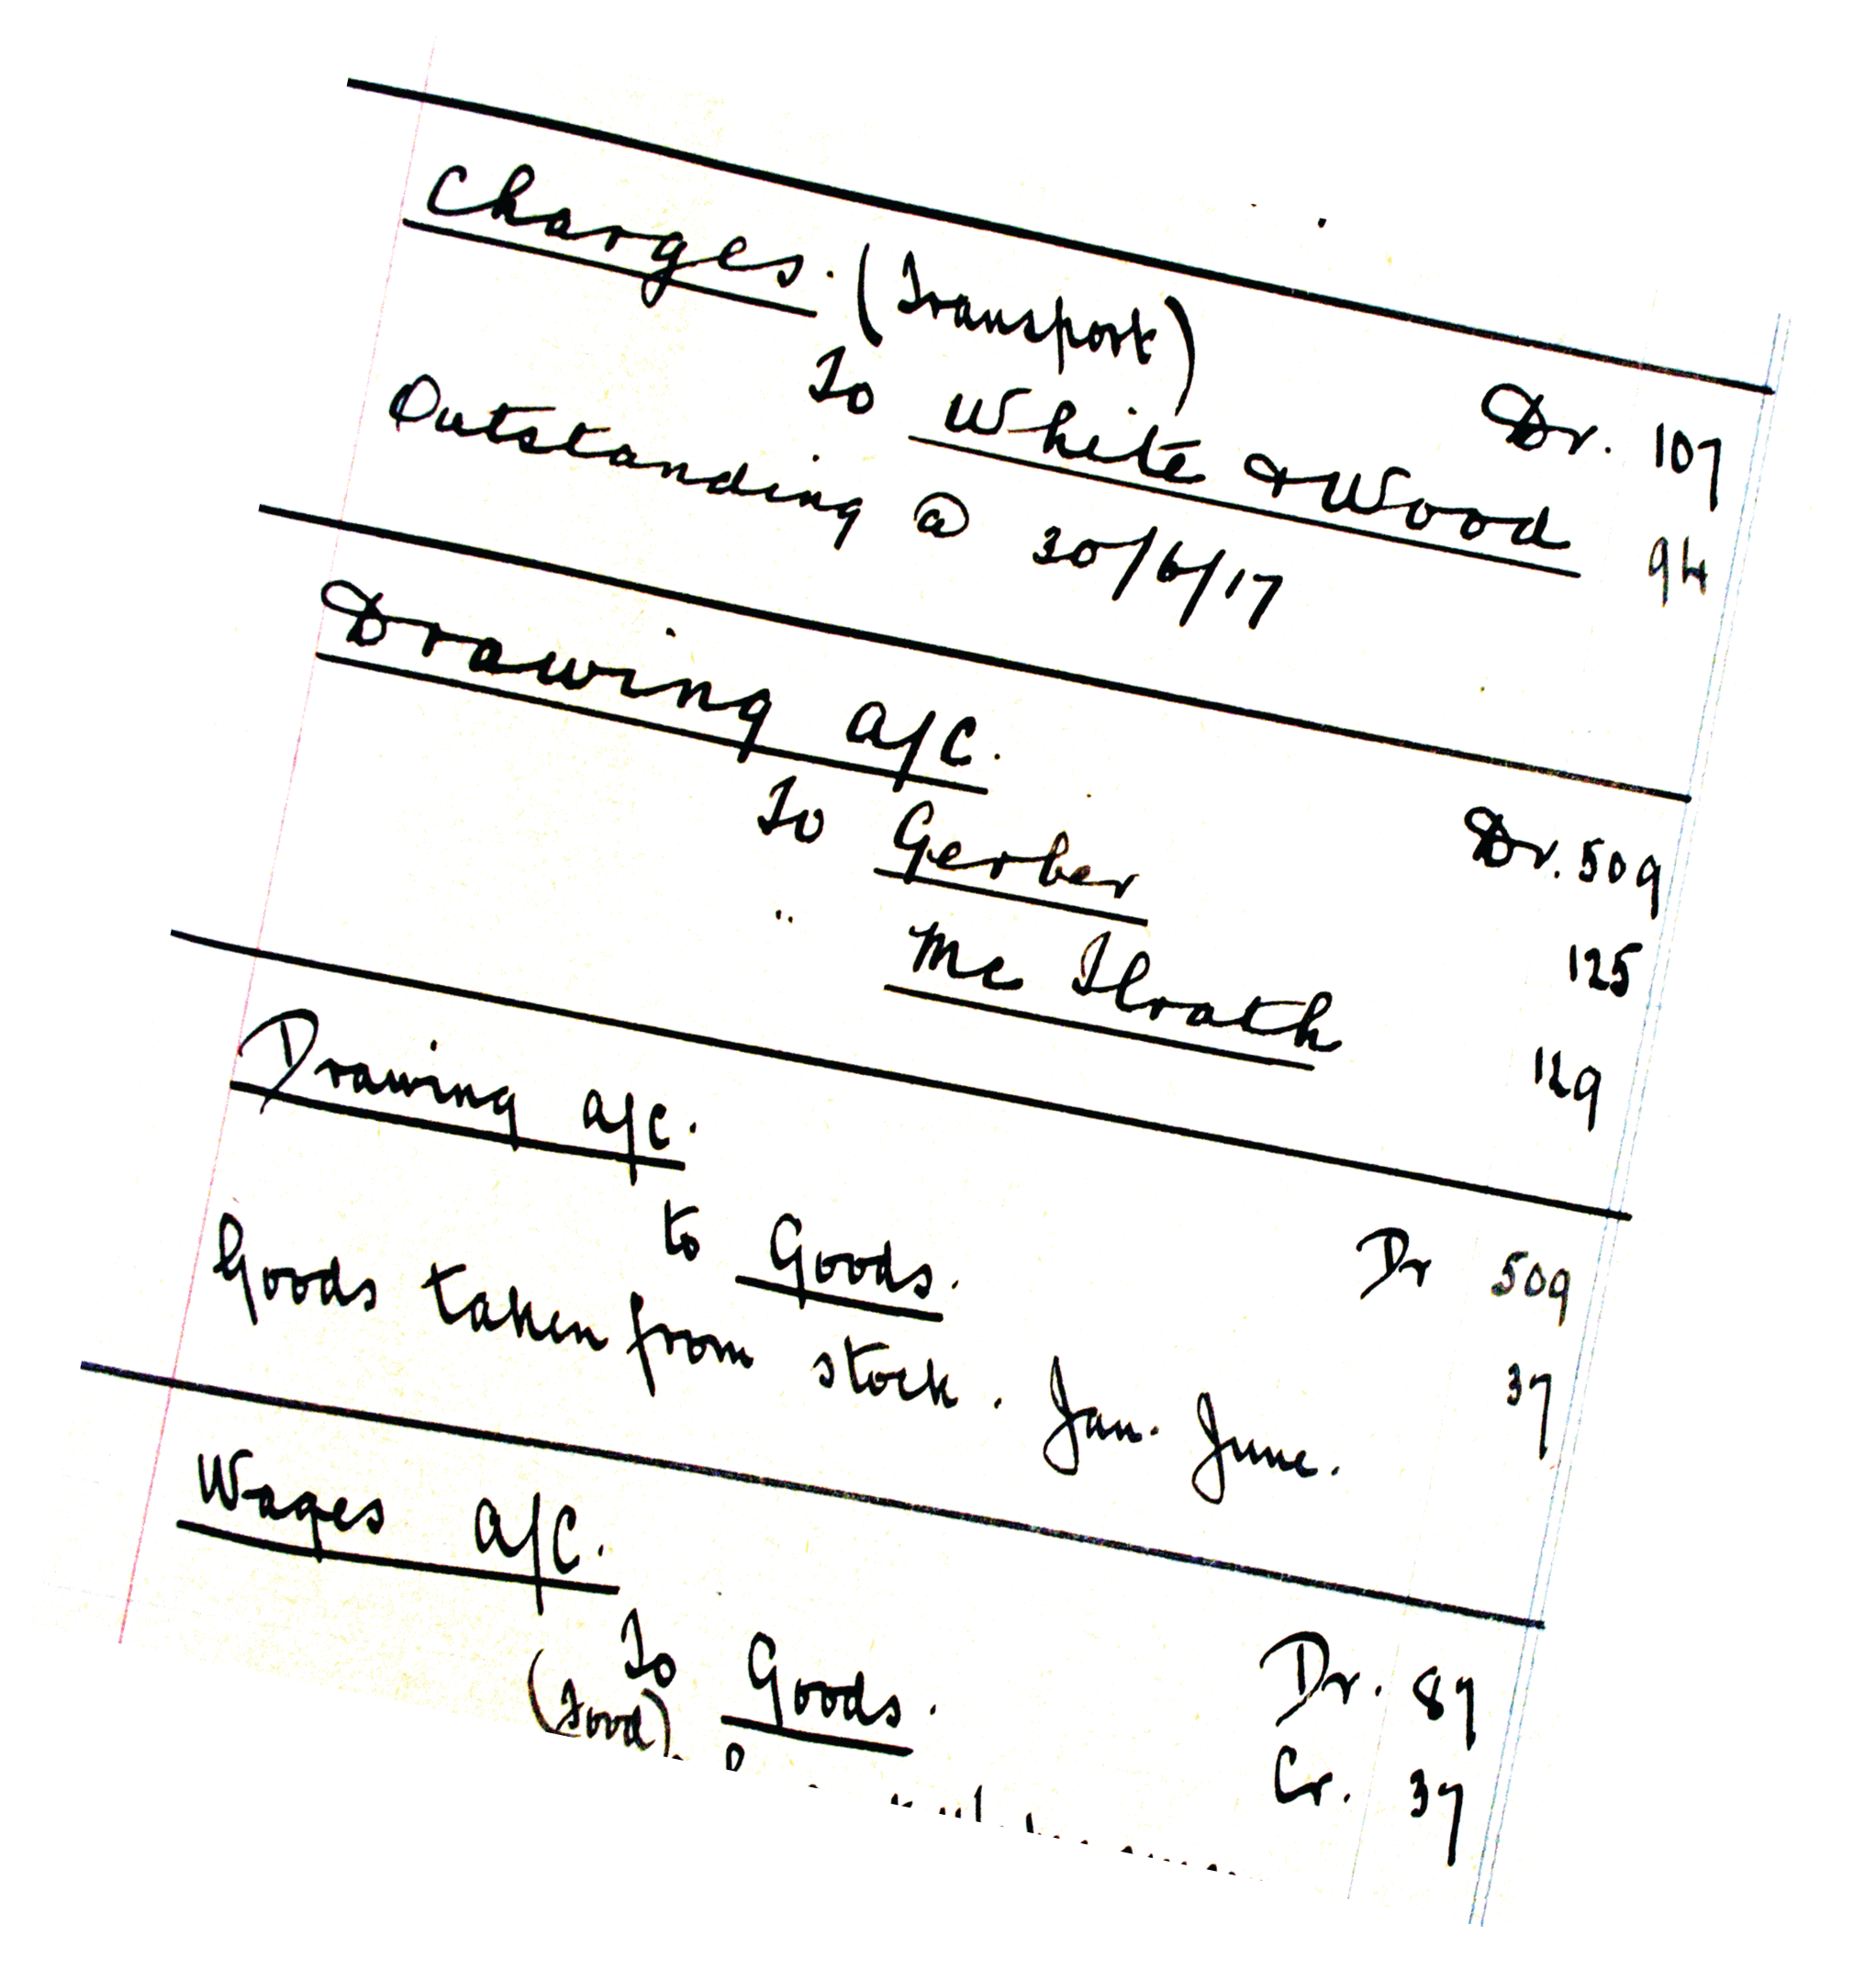 Charges. (Transport) Dr. 107
To White & Wood 94
Outstanding @ 30/6/17
Drawing a/c. Dr. 509
To Gerber 125
" Mc Ilrath 129
Drawing a/c. Dr 509
to Goods. 37
Goods taken from stock. Jan. June.
Wages a/c. Dr. 89
To Goods. Cr. 37
(Food)